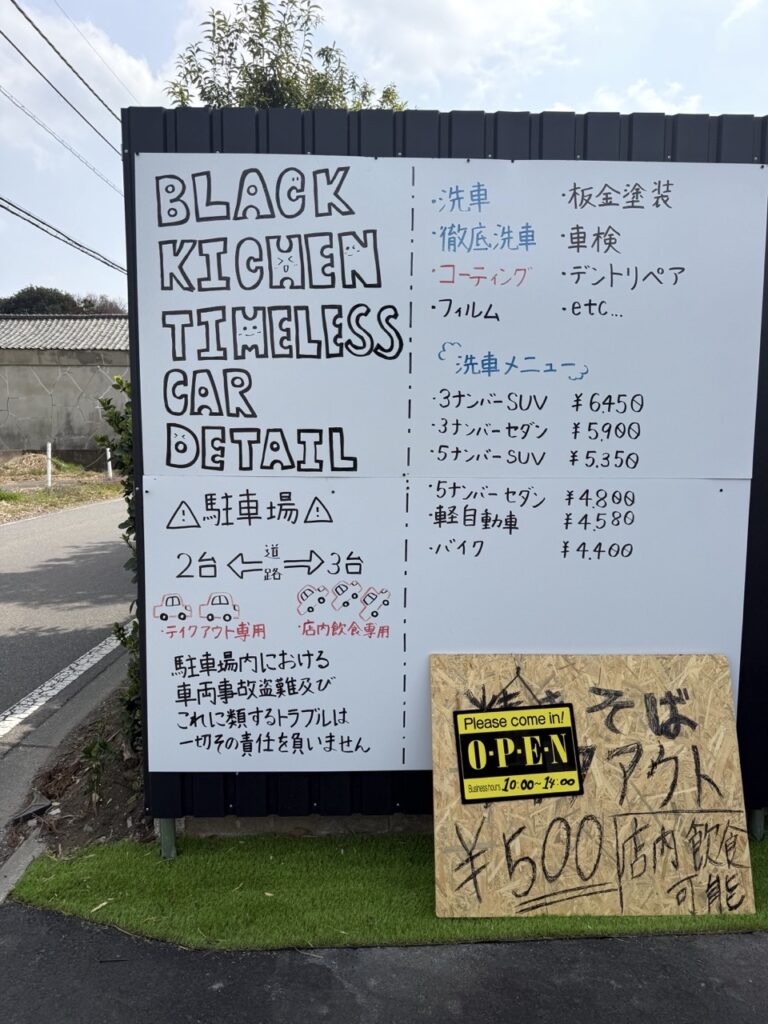 BLACK
KICHEN
TIMELESS
CAR
DETAIL
⚠駐車場⚠
2台 ⇐ 道路 ⇒ 3台
・テイクアウト専用 ・店内飲食専用
駐車場内における
車両事故盗難及び
これに類するトラブルは
一切その責任を負いません
・洗車 ・板金塗装
・徹底洗車 ・車検
・コーティング ・デントリペア
・フィルム ・etc...
洗車メニュー
・3ナンバーSUV ¥6,450
・3ナンバーセダン ¥5,900
・5ナンバーSUV ¥5,350
・5ナンバーセダン ¥4,800
・軽自動車 ¥4,580
・バイク ¥4,400
そば
アウト
¥500 店内飲食
可能
Please come in!
O・P・E・N
Business hours 10:00~14:00